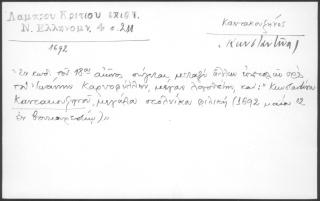 Λάμπρου Κριτίου επιγρ.
Ν. Ελληνομν. 4 σ. 211
Καντακουζηνός
Κωνσταντῖνος
1692
"Ἐν κώδ. τοῦ 18ου αἰῶνος σώζεται μεταξὺ ἄλλων ἐπιστολῶν πρὸς
τὸν Ἰωάννην Καρυοφύλλην, μέγαν λογοθέτην, καὶ: "Κωνσταντίνου
Καντακουζηνοῦ, μεγάλου στολνίκου φιλική (1692 μαΐου 12
ἐν Βουκουρεστίῳ)»